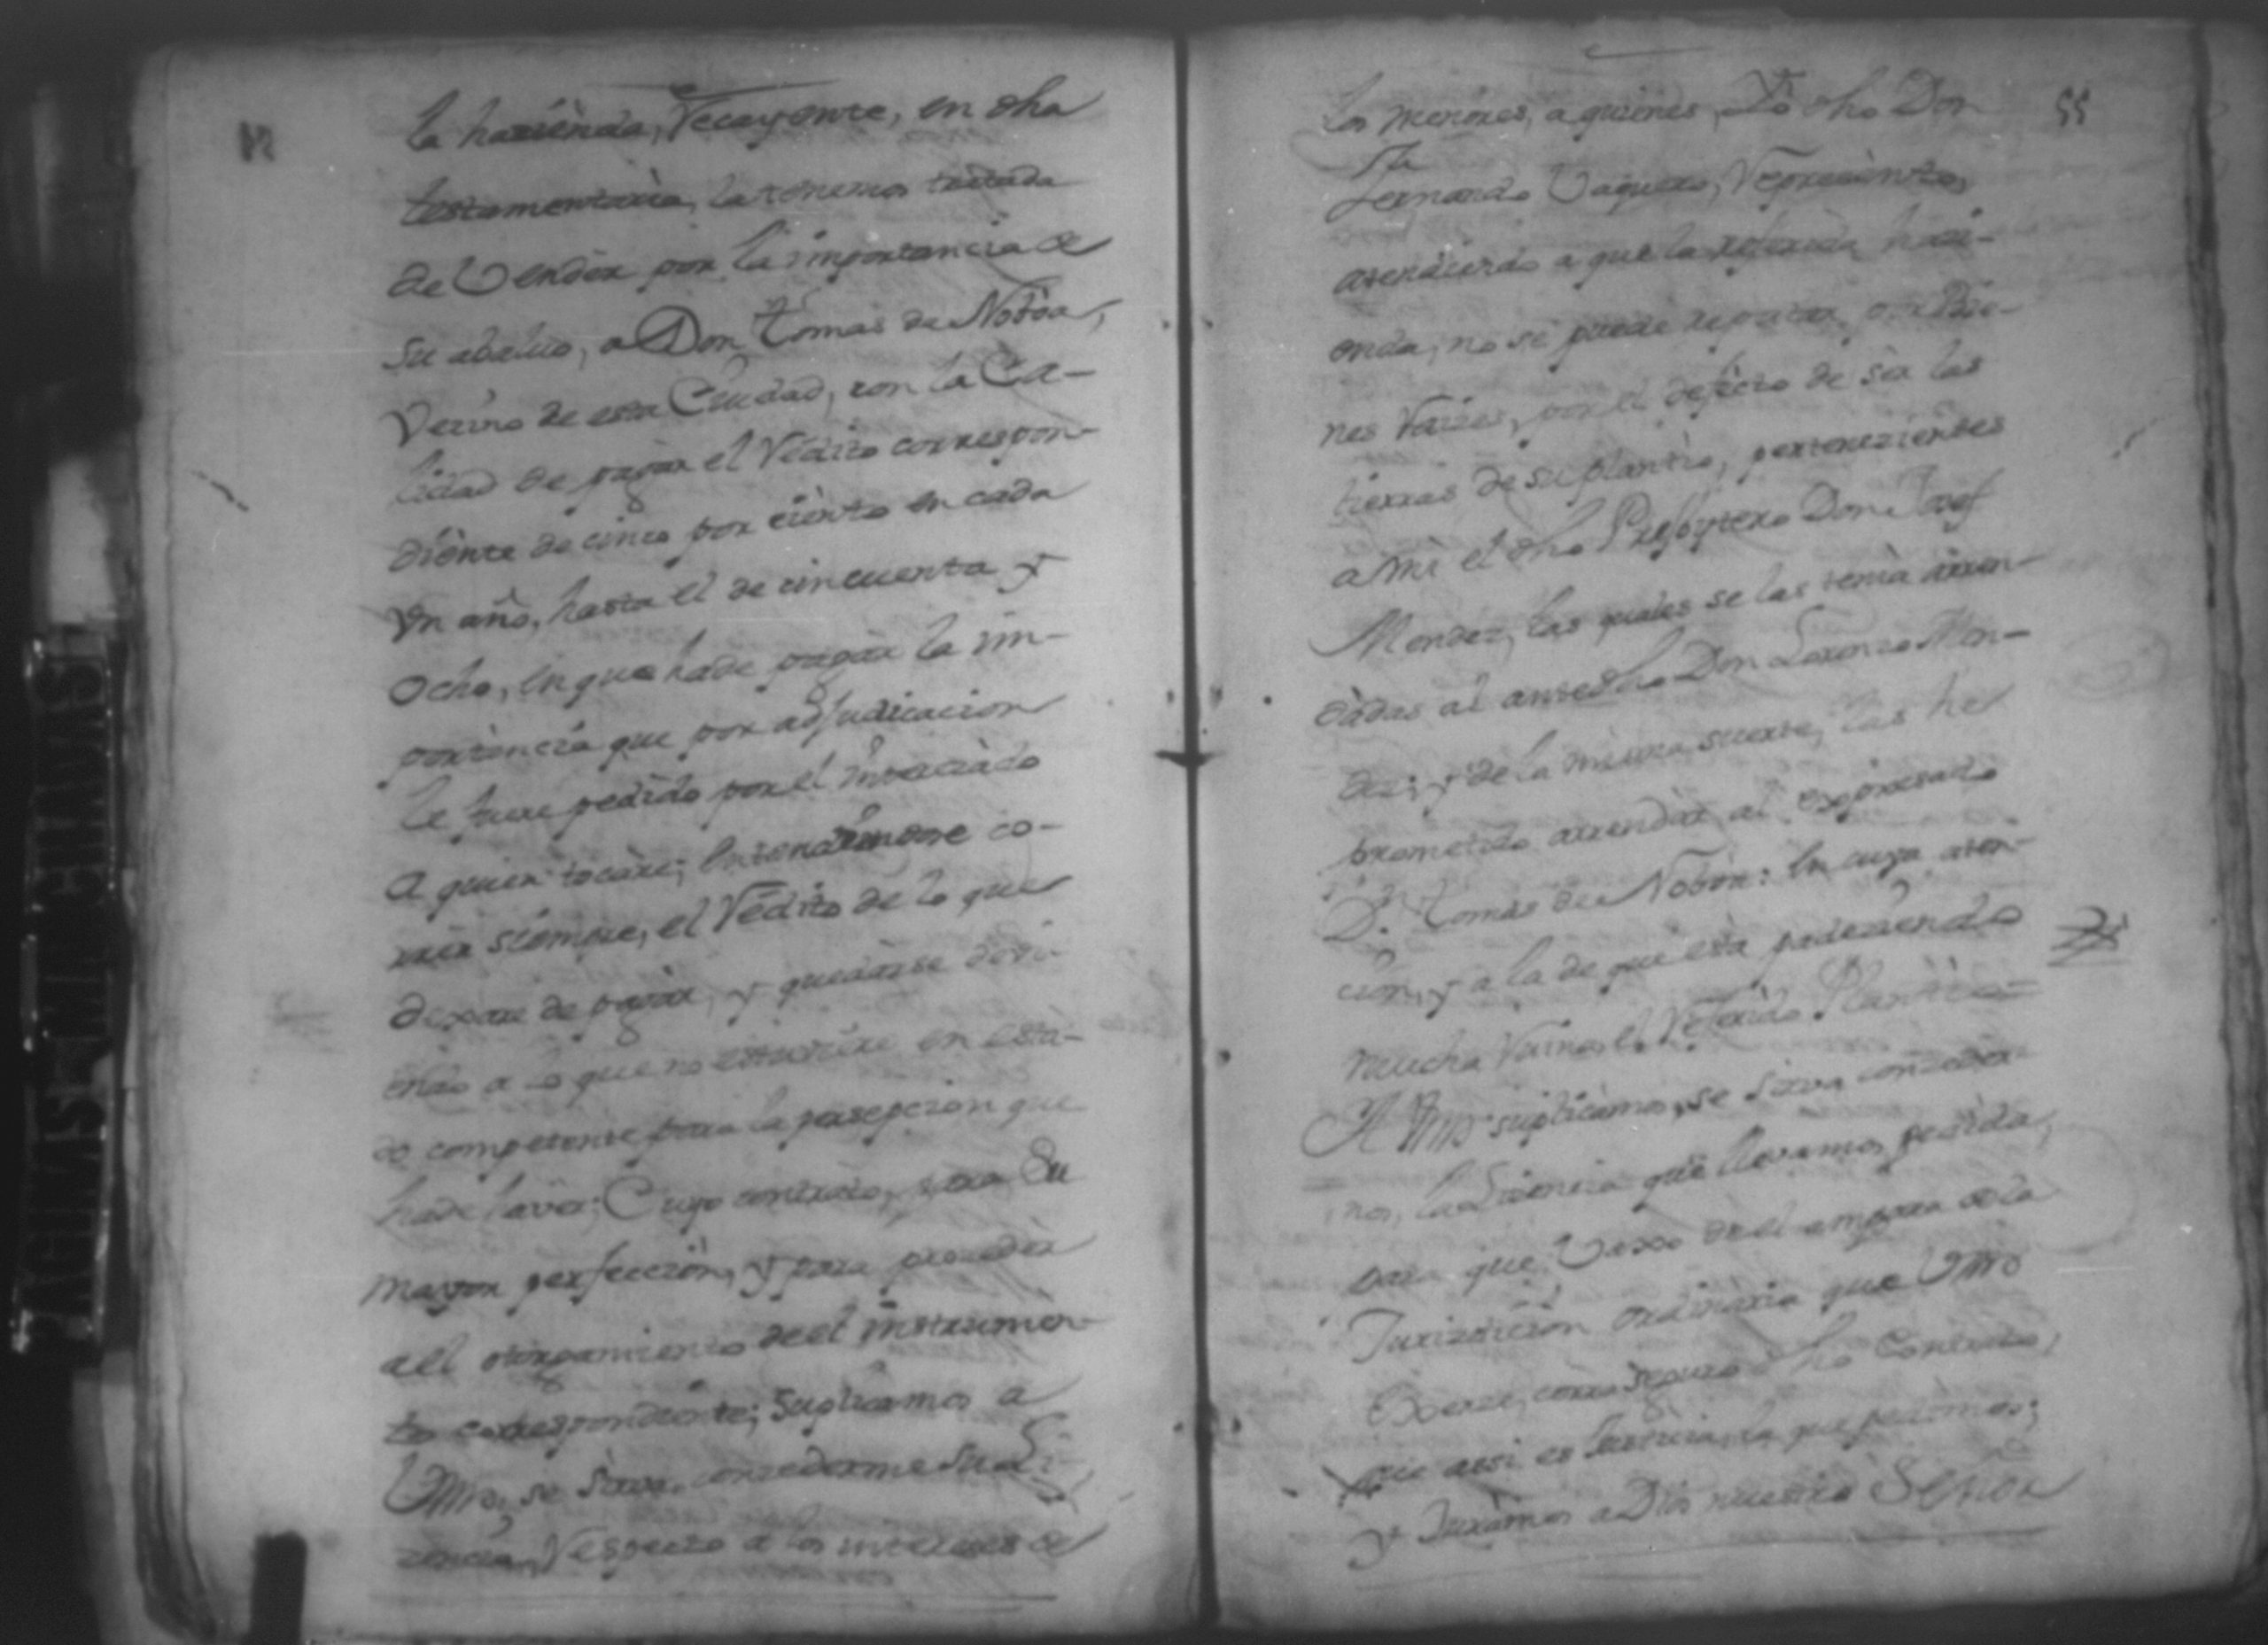 la hazienda, Recayente, en dha
testamentaria, la tenemos tratada
de Vender por la importancia de
su abaluo, a Don Tomas de Noboa,
Vezino de esta Ciudad, con la Ca-
lidad de pagar el Redito correspon-
diente de cinco por ciento en cada
Vn año, hasta el de cincuenta y
Ocho, en que ha de pagar la im-
portancia que por adjudicacion
le fuere pedido por el interezado
A quien tocare; entendiendose co-
rrer siempre, el Redito de lo que
dexare de pagar, y quedarse devi-
endo a lo que no estuviere en esta-
do competente para la persepcion que
ha de haver; Cuyo contrato, para Su
mayor perfeccion, y para proceder
a el otorgamiento de el instrumen-
to correspondiente; Suplicamos a
Vmd, se sirva concederme su Li-
zencia, Respecto a los intereses de
55
los menores, a quienes, Yo dho Don
Fernando Vaquero, Represento,
atendiendo a que la referida hazi-
enda, no se puede reputar por Bie-
nes Raizes, por el defecto de ser las
tierras de su plantio, pertenezientes
a Mi el dho Presbytero Don Josef
Mendez, las quales se las tenia arren-
dadas al antedho Don Lorenzo Men-
dez; y de la misma suerte, las he
prometido arrendar al expresado
D.n Tomas de Noboa: En cuya aten-
cion, y a la de que esta padeziendo
mucha Ruina el Referido Plantio=
A Vmd suplicamos, se sirva conzeder-
nos, la Lizencia que llevamos pedida,
para que Vaxo de el amparo de la
Jurizdicion Ordinaria que Vmd
Exerze, corra seguro dho Contrato,
que assi es Justicia, la que pedimos;
Y Juramos a Dios nuestro Señor